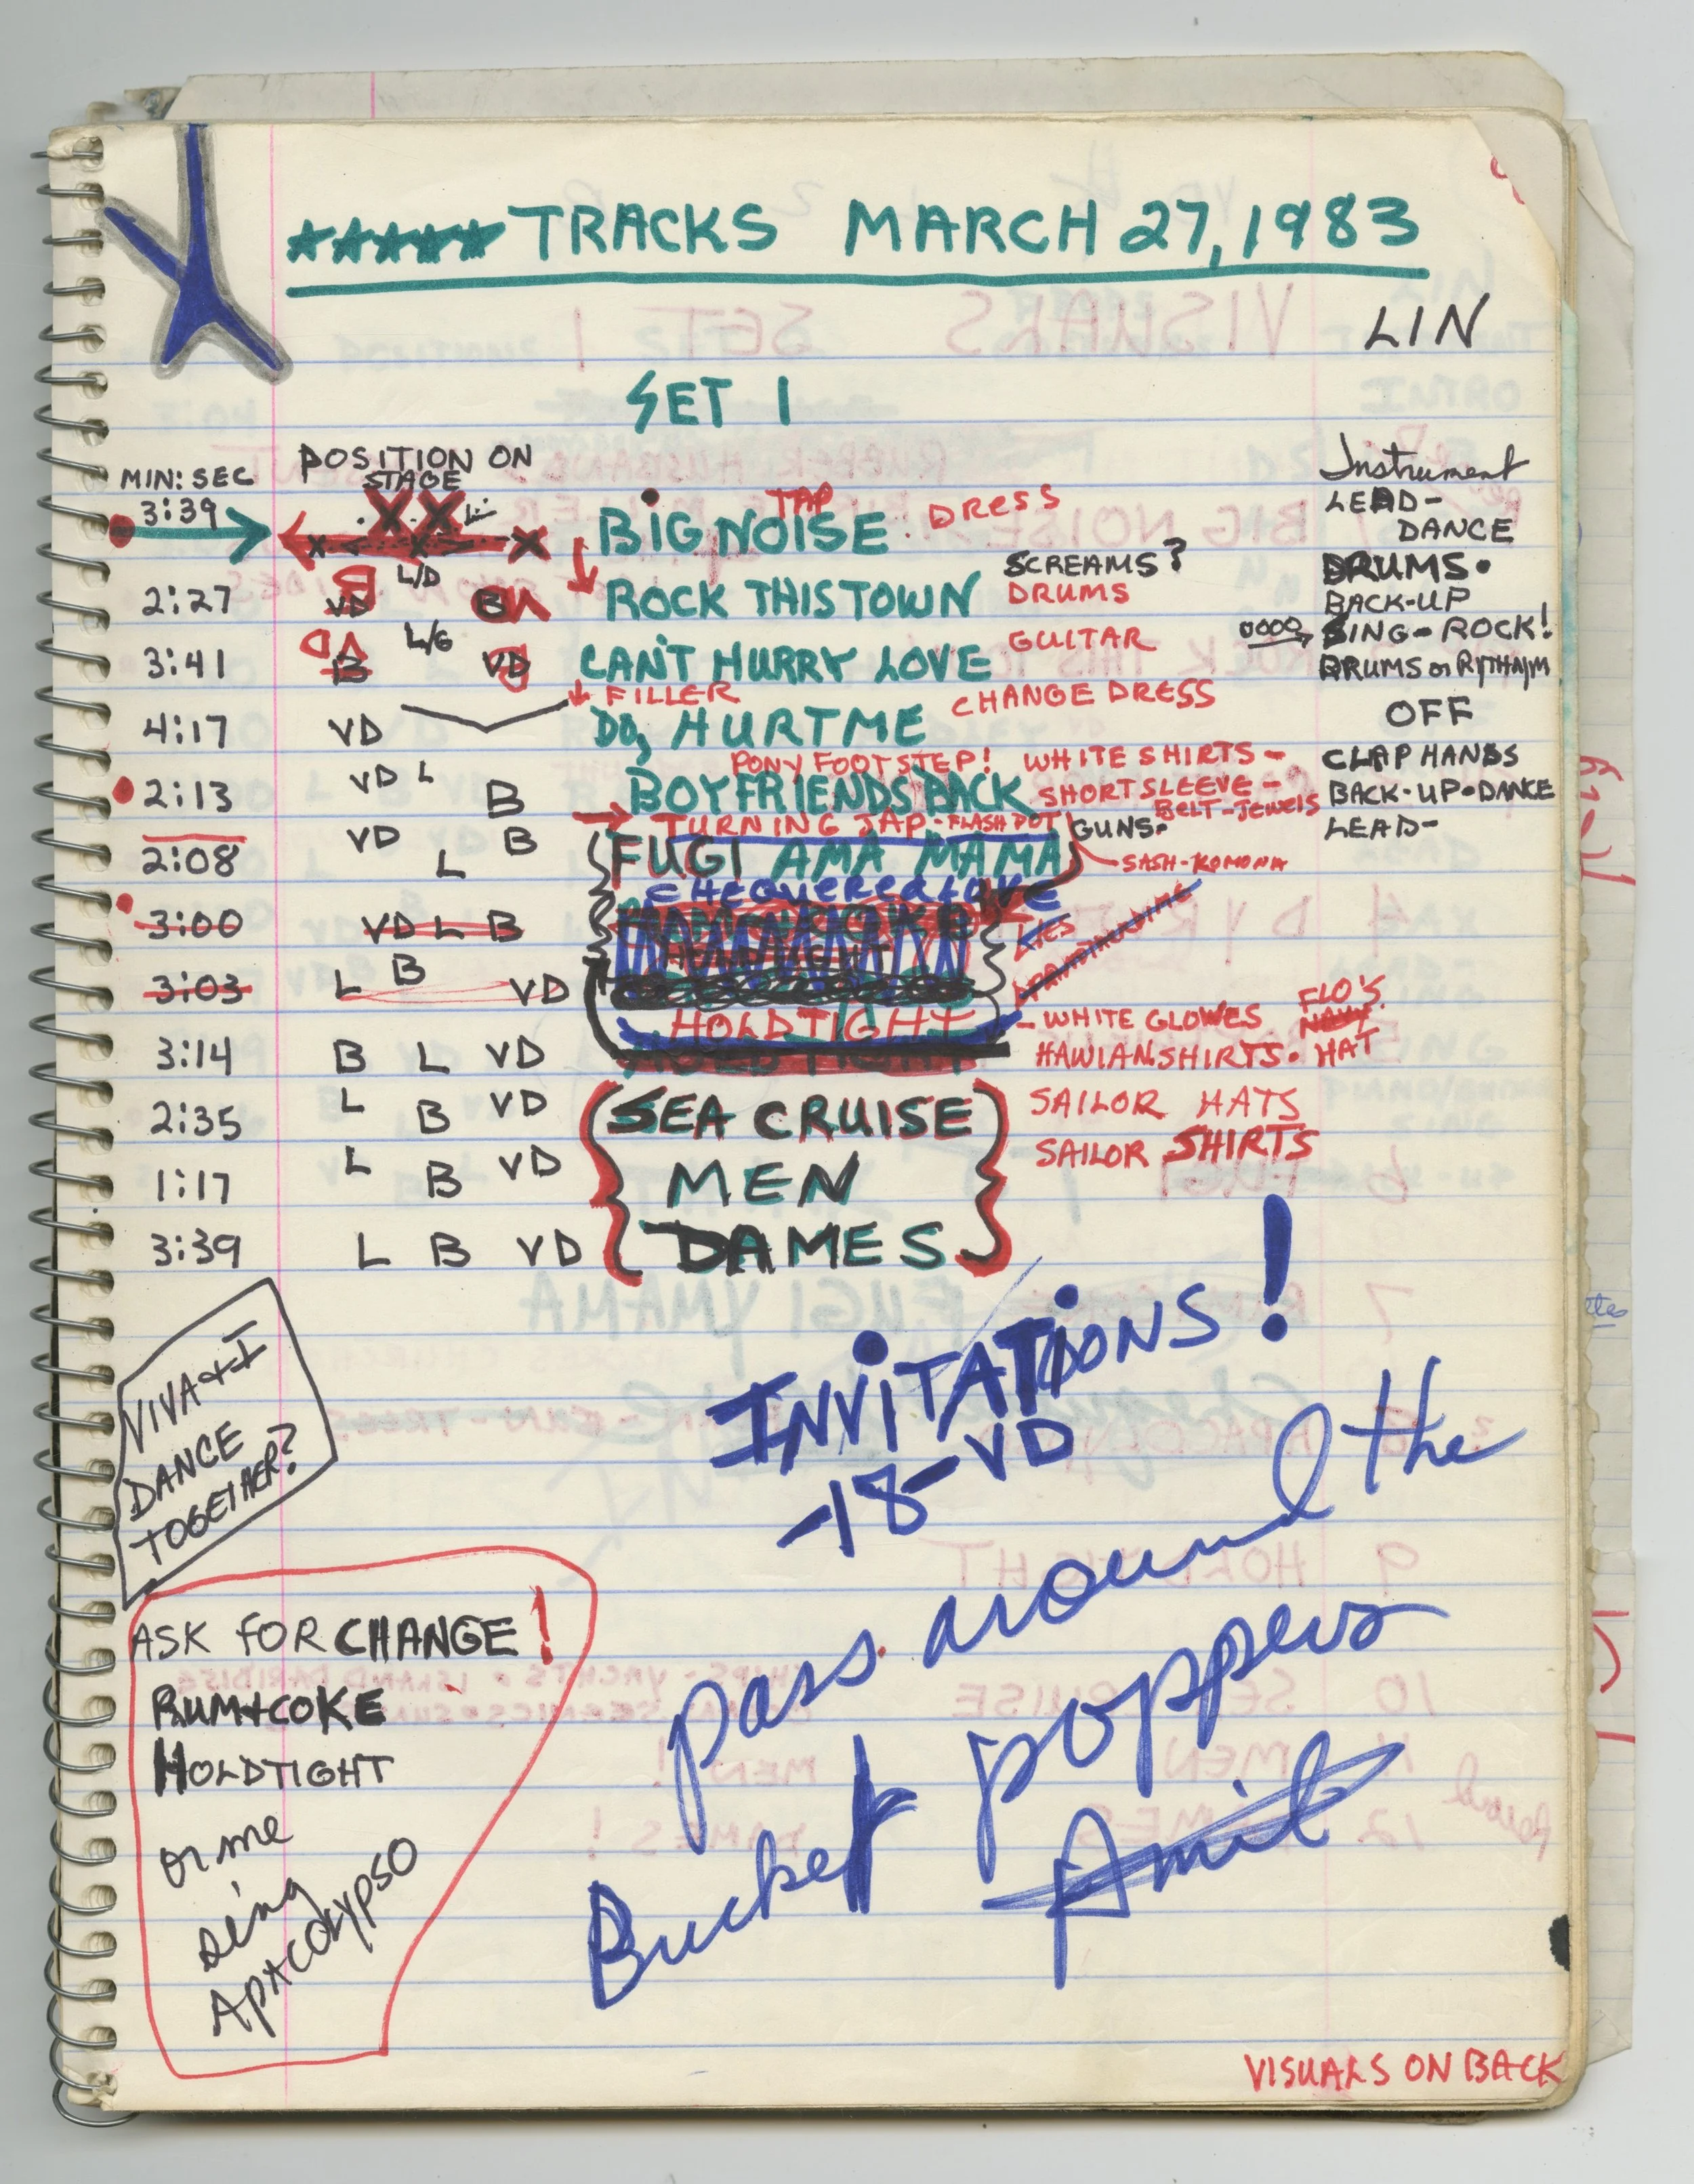 ★★★★★ TRACKS MARCH 27, 1983
LIN
SET 1
MIN: SEC
POSITION ON
STAGE
Instrument
3:39
BIG NOISE
TAP
DRESS
LEAD-
DANCE
2:27
L/D
VD
B
ROCK THIS TOWN
SCREAMS?
DRUMS
DRUMS.
BACK-UP
3:41
L/G
B
VD
CAN'T HURRY LOVE
GUITAR
OOOO
SING- ROCK!
DRUMS or RYTHAJM
FILLER
CHANGE DRESS
4:17
VD
DO, HURT ME
OFF
PONY FOOTSTEP!
WHITE SHIRTS -
CLAP HANDS
2:13
VD L
B
BOYFRIENDS BACK
SHORT SLEEVE -
BELT-JEWELS
BACK-UP•DANCE
TURNING JAP - FLASH POT
GUNS.
LEAD-
2:08
VD
L
B
FUGI AMA MAMA
SASH-KOMONA
CHEQUERED LOVE
3:00
VD L B
LIES
3:03
L
B
VD
HOLD TIGHT
- WHITE GLOWES
FLO'S
NAVY
3:14
B L VD
HOLD TIGHT
HAWIAN SHIRTS. HAT
2:35
L
B
VD
SEA CRUISE
SAILOR HATS
1:17
L
B
VD
MEN
SAILOR SHIRTS
3:39
L B VD
DAMES
VIVA + I
DANCE
TOGETHER?
INVITATIONS!
-18-VD
pass around the
Bucket poppers
Amit
ASK FOR CHANGE!
RUM+COKE
HOLDTIGHT
or me
sing
APACOLYPSO
VISUALS ON BACK